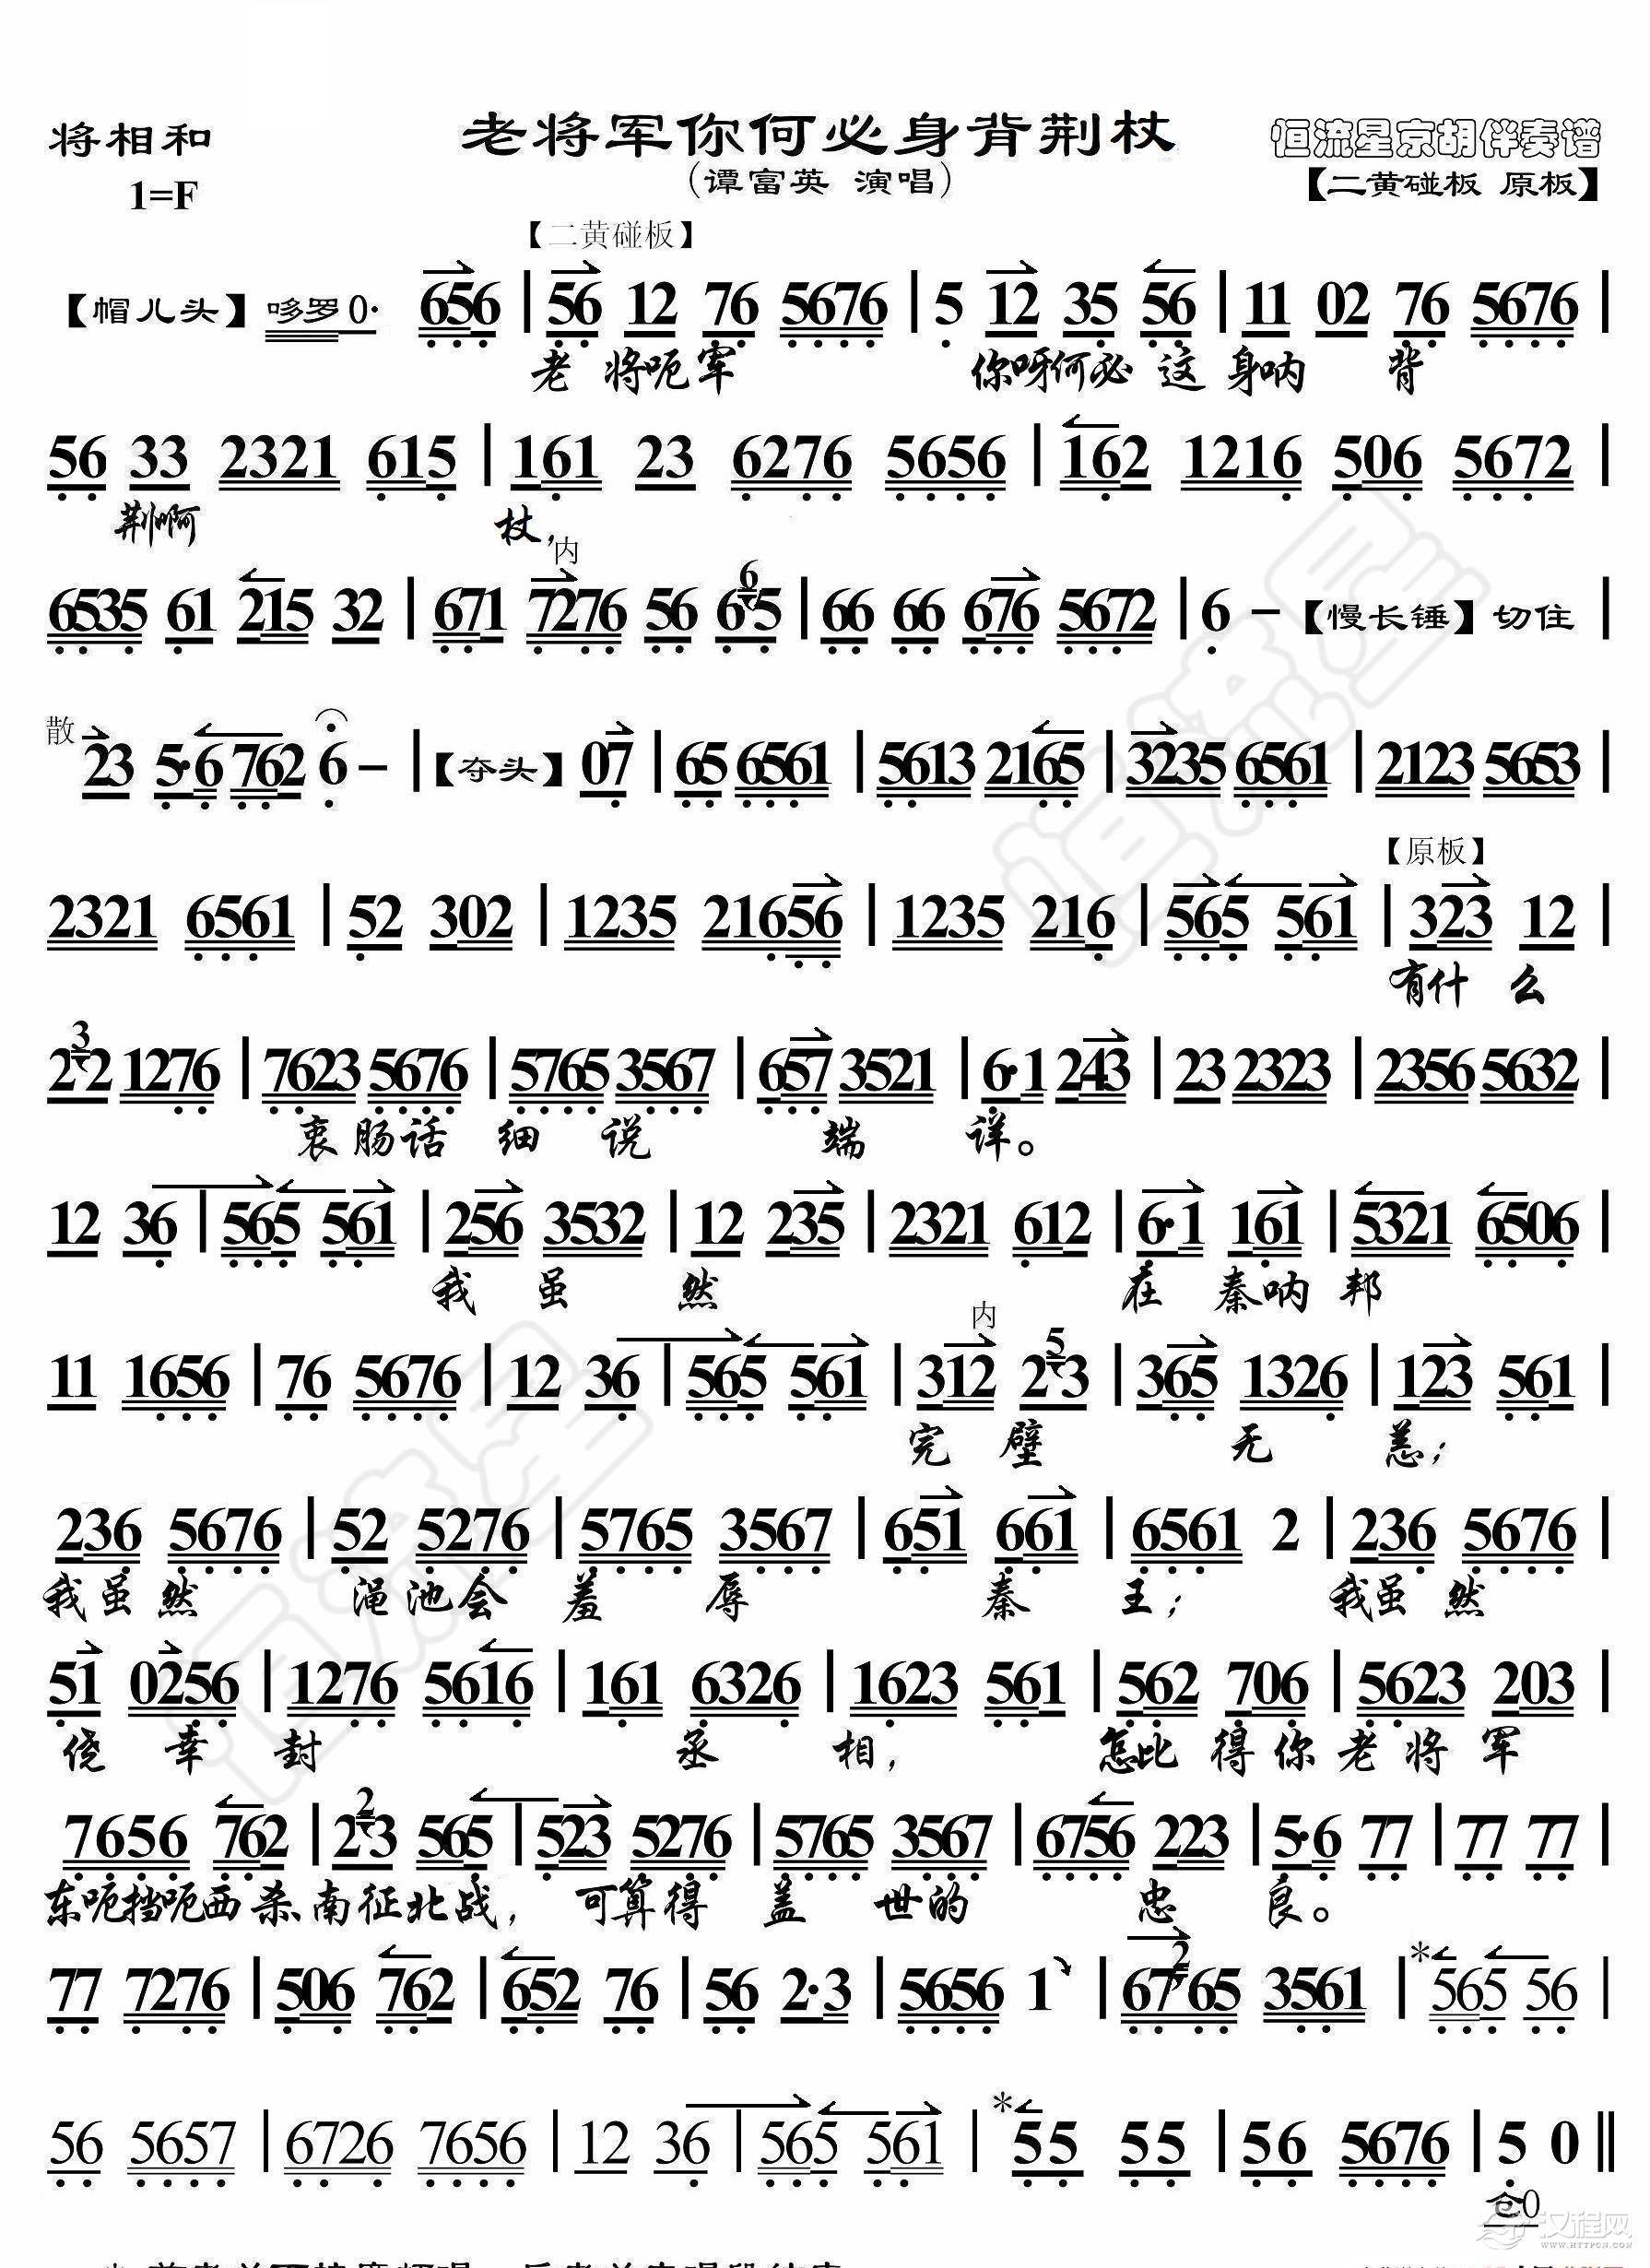 将相和 老将军你何必身背荆杖 恒流星京胡伴奏谱
1=F (谭富英 演唱) 【二黄碰板 原板】
【二黄碰板】
【帽儿头】哆罗 0· 656 | 56 12 76 5676 | 5 12 35 56 | 11 02 76 5676 |
老 将呃军 你呀何必 这 身呐 背
56 33 2321 615 | 161 23 6276 5656 | 162 1216 506 5672 |
荆啊 杖,
内
6
6535 61 215 32 | 671 7276 56 65 | 66 66 676 5672 | 6 – 【慢长锤】切住 |
散 23 5·6 762 6 – | 【夺头】 07 | 65 6561 | 5613 2165 | 3235 6561 | 2123 5653 |
【原板】
2321 6561 | 52 302 | 1235 21656 | 1235 216 | 565 561 | 323 12 |
有什 么
3
22 1276 | 7623 5676 | 5765 3567 | 657 3521 | 6·1 243 | 23 2323 | 2356 5632 |
衷 肠话 细 说 端 详。
12 36 | 565 561 | 256 3532 | 12 235 | 2321 612 | 6·1 161 | 5321 6506 |
我 虽 然 在 秦呐 邦
内 5
11 1656 | 76 5676 | 12 36 | 565 561 | 312 23 | 365 1326 | 123 561 |
完 璧 无 恙;
236 5676 | 52 5276 | 5765 3567 | 651 661 | 6561 2 | 236 5676 |
我虽 然 渑 池会 羞 辱 秦 王; 我虽 然
51 0256 | 1276 5616 | 161 6326 | 1623 561 | 562 706 | 5623 203 |
侥 幸 封 丞 相, 怎比 得 你 老 将 军
2
7656 762 | 23 565 | 523 5276 | 5765 3567 | 6756 223 | 5·6 77 | 77 77 |
东呃挡呃西 杀 南 征 北 战, 可算得 盖 世的 忠 良。
2
77 7276 | 506 762 | 652 76 | 56 2·3 | 5656 1 | 6765 3561 | *565 56 |
56 5657 | 6726 7656 | 12 36 | 565 561 | *55 55 | 56 5676 | 5 0 ‖
仓0
汉程网
WWW.HTTPCN.COM